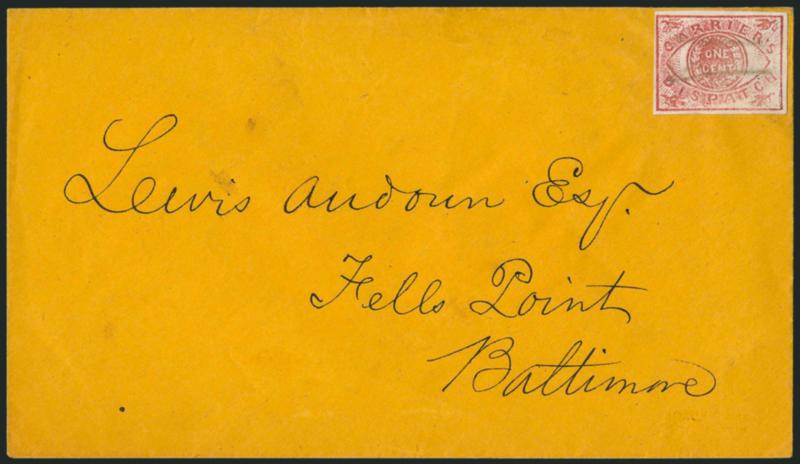 CARRIER'S
ONE
CENT
DISPATCH
Lewis Audoun Esq.
Fells Point
Baltimore